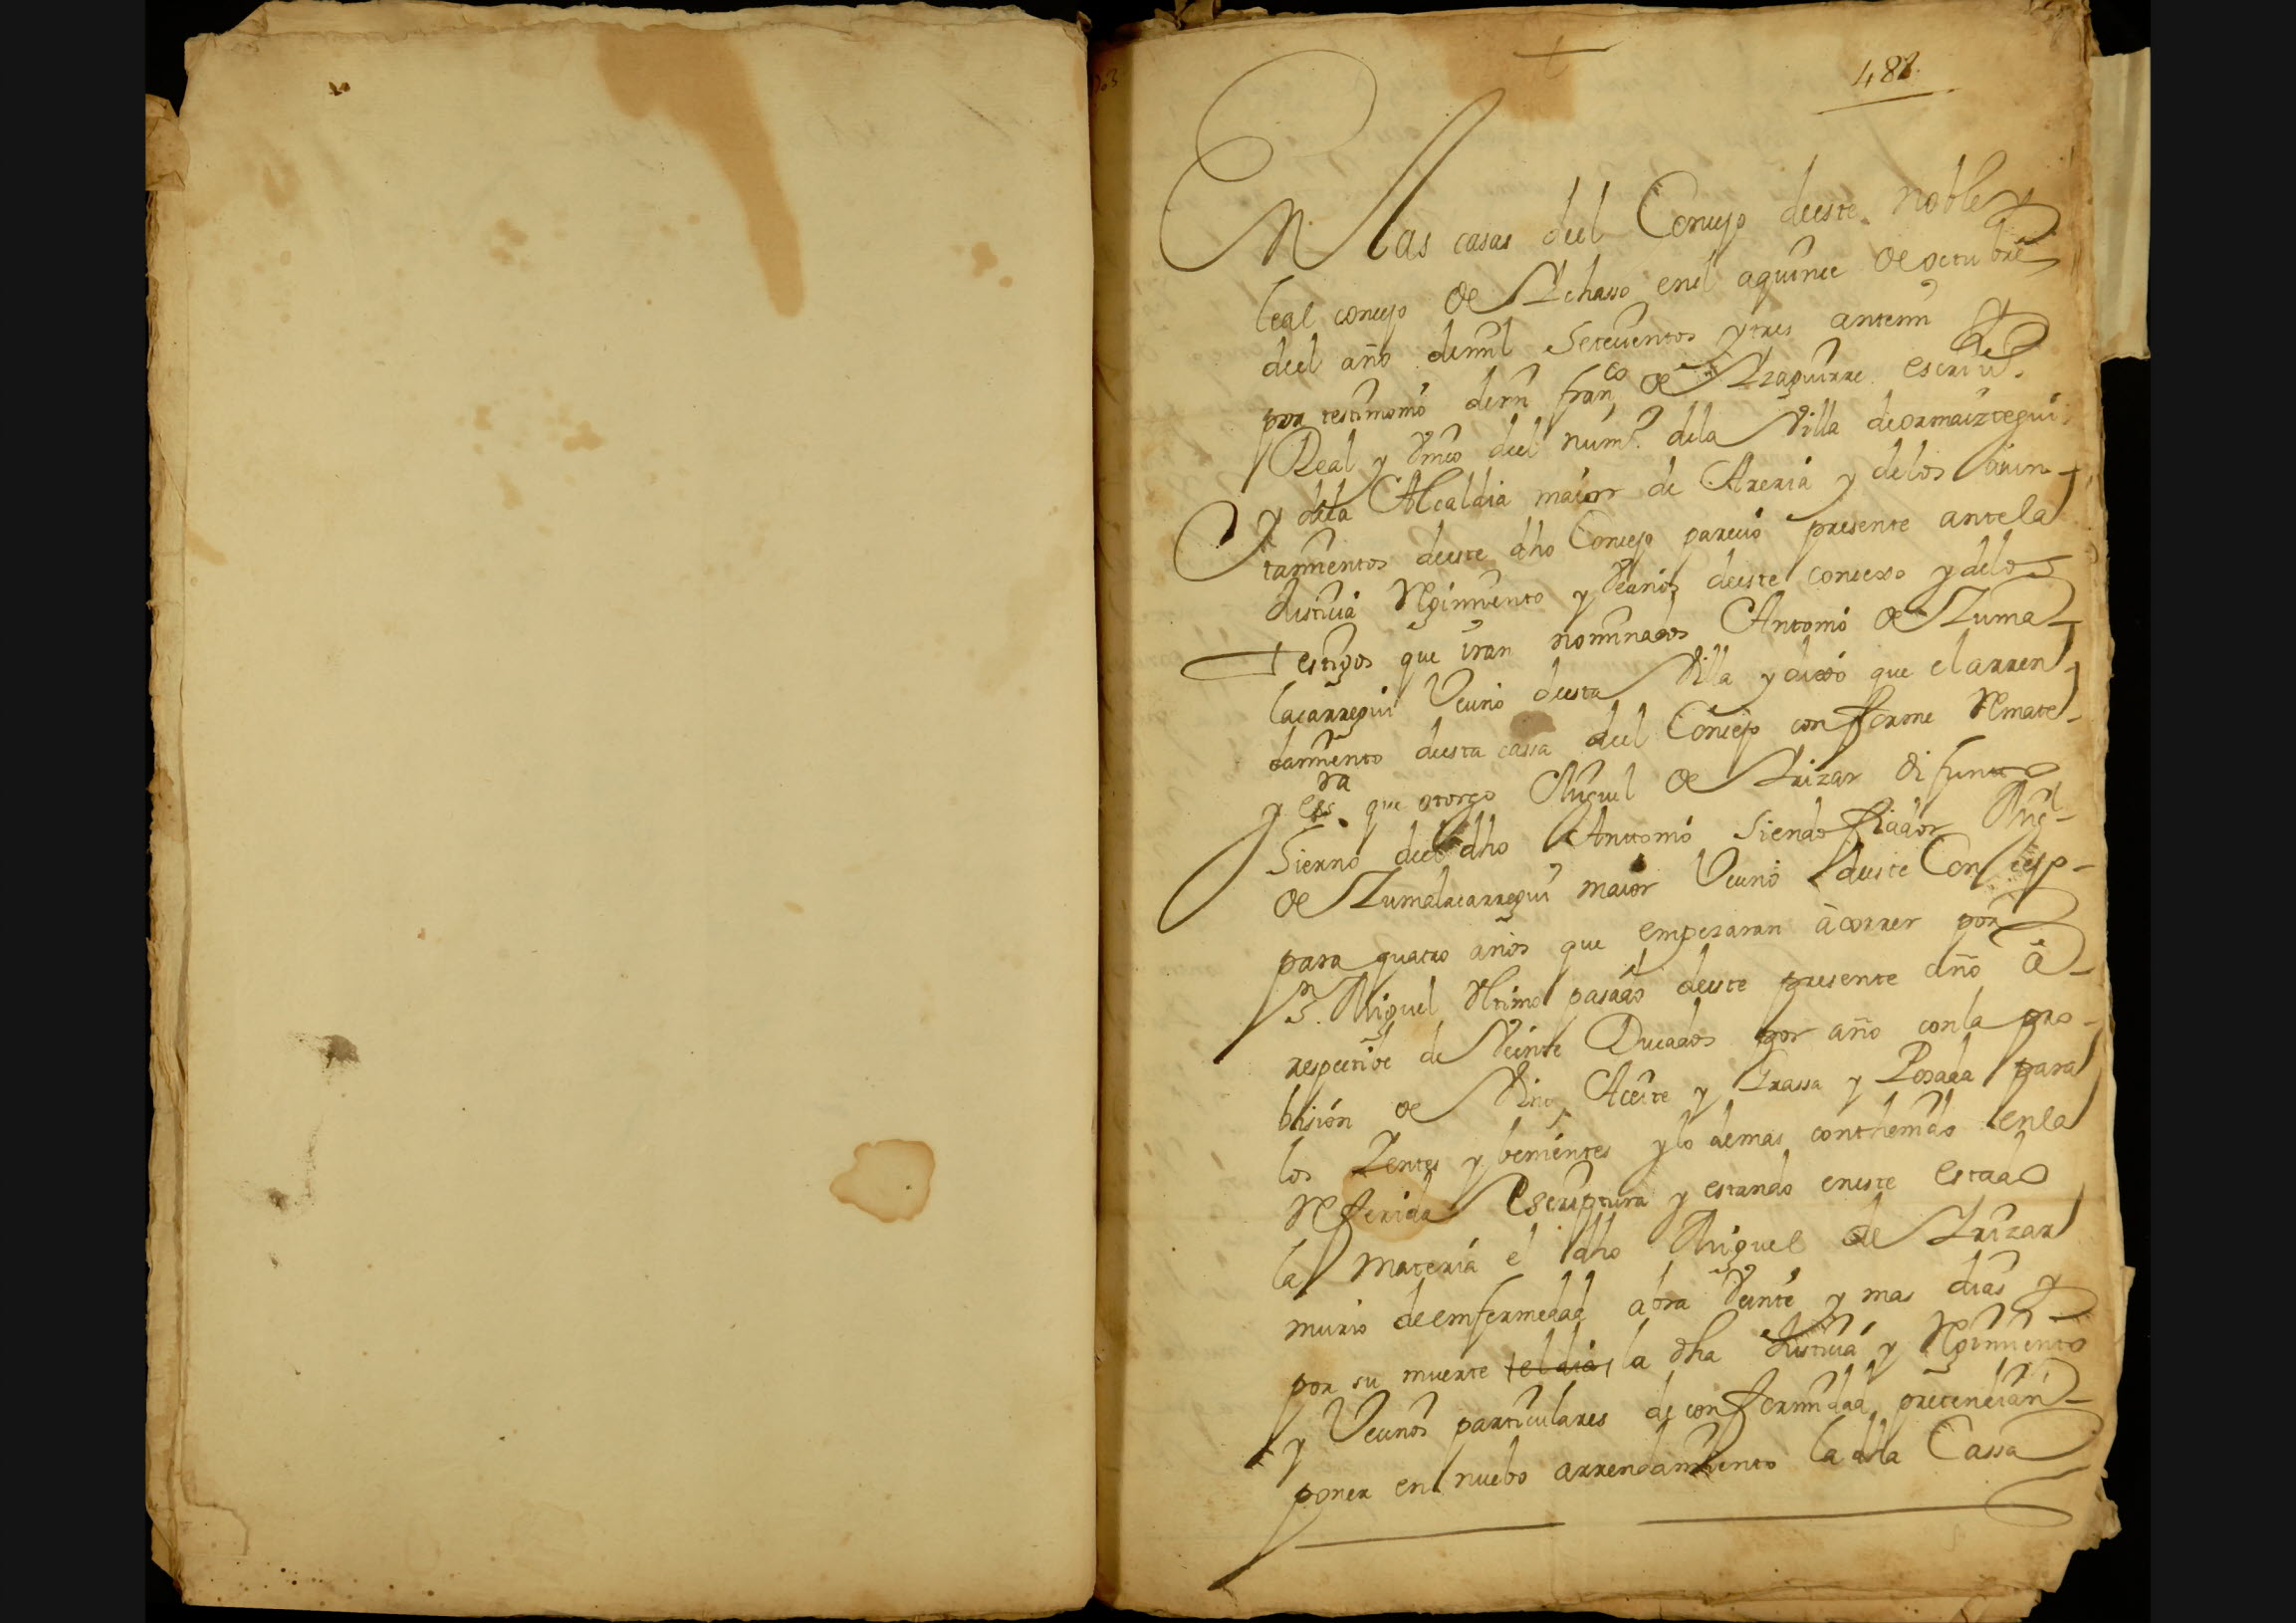 482
En las casas deel Concejo deeste noble y
leal concejo de Ichasso en el a quince de octubre
deel año de mill Setecientos y tres ante mi y
por testimonio de mi fran.co de Izaguirre escriv.
Real y Unico deel num.o dela Villa de ormaiztegui
y dela Alcaldia maior de Areria y delos aiun-
tamientos deeste dho Concejo parecio presente ante la
Justicia Regimiento y Vecinos deeste concexo y delos
testigos que iran nominados Antonio de Zuma-
lacarregui Vecino deesta Villa y dixo que el arren-
damiento deesta cassa deel Concejo conforme Remate
y ess.ra que otorgo Miguel de Irizar difunto
Yerno deel dho Anttonio siendo fiador Mig.l
de Zumalacarregui maior Vecino deeste Concejo
para quatro años que empezaran â correr por
S.n Miguel Ultimo pasado deeste presente año â
respective de Veinte Ducados por año con la pro-
bision de Vino Aceite y Grassa y Posada para
los Ientes y benientes y lo demas conthenido en la
Referida Escriptura y estando eneste estado
la materia el dho Miguel de Irizar
murio de enfermedad abra Veinte y mas dias y
por su muerte el dia la dha Justicia y Regimiento
y Vecinos particulares de conformidad pretendian
poner en nuebo arrendamiento la dha Cassa